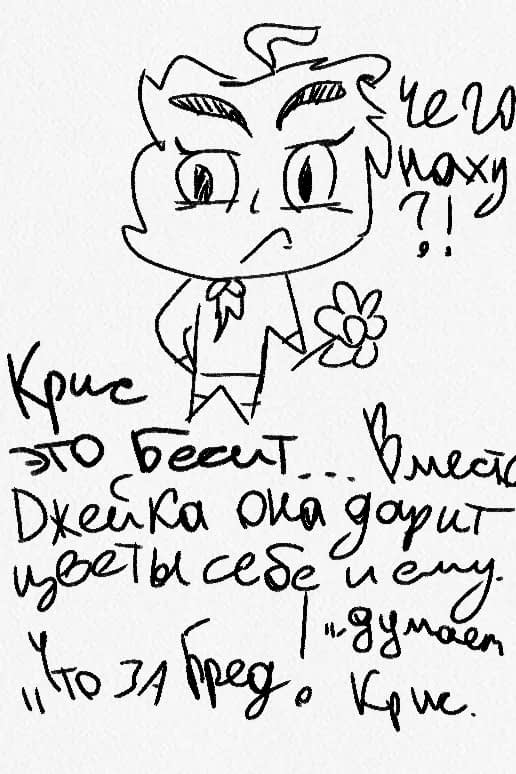 чего
наху
?!
Крис
это бесит... Вместо
Джейка она дарит
цветы себе и ему.
"Что за бред.
"..думает
Крис.